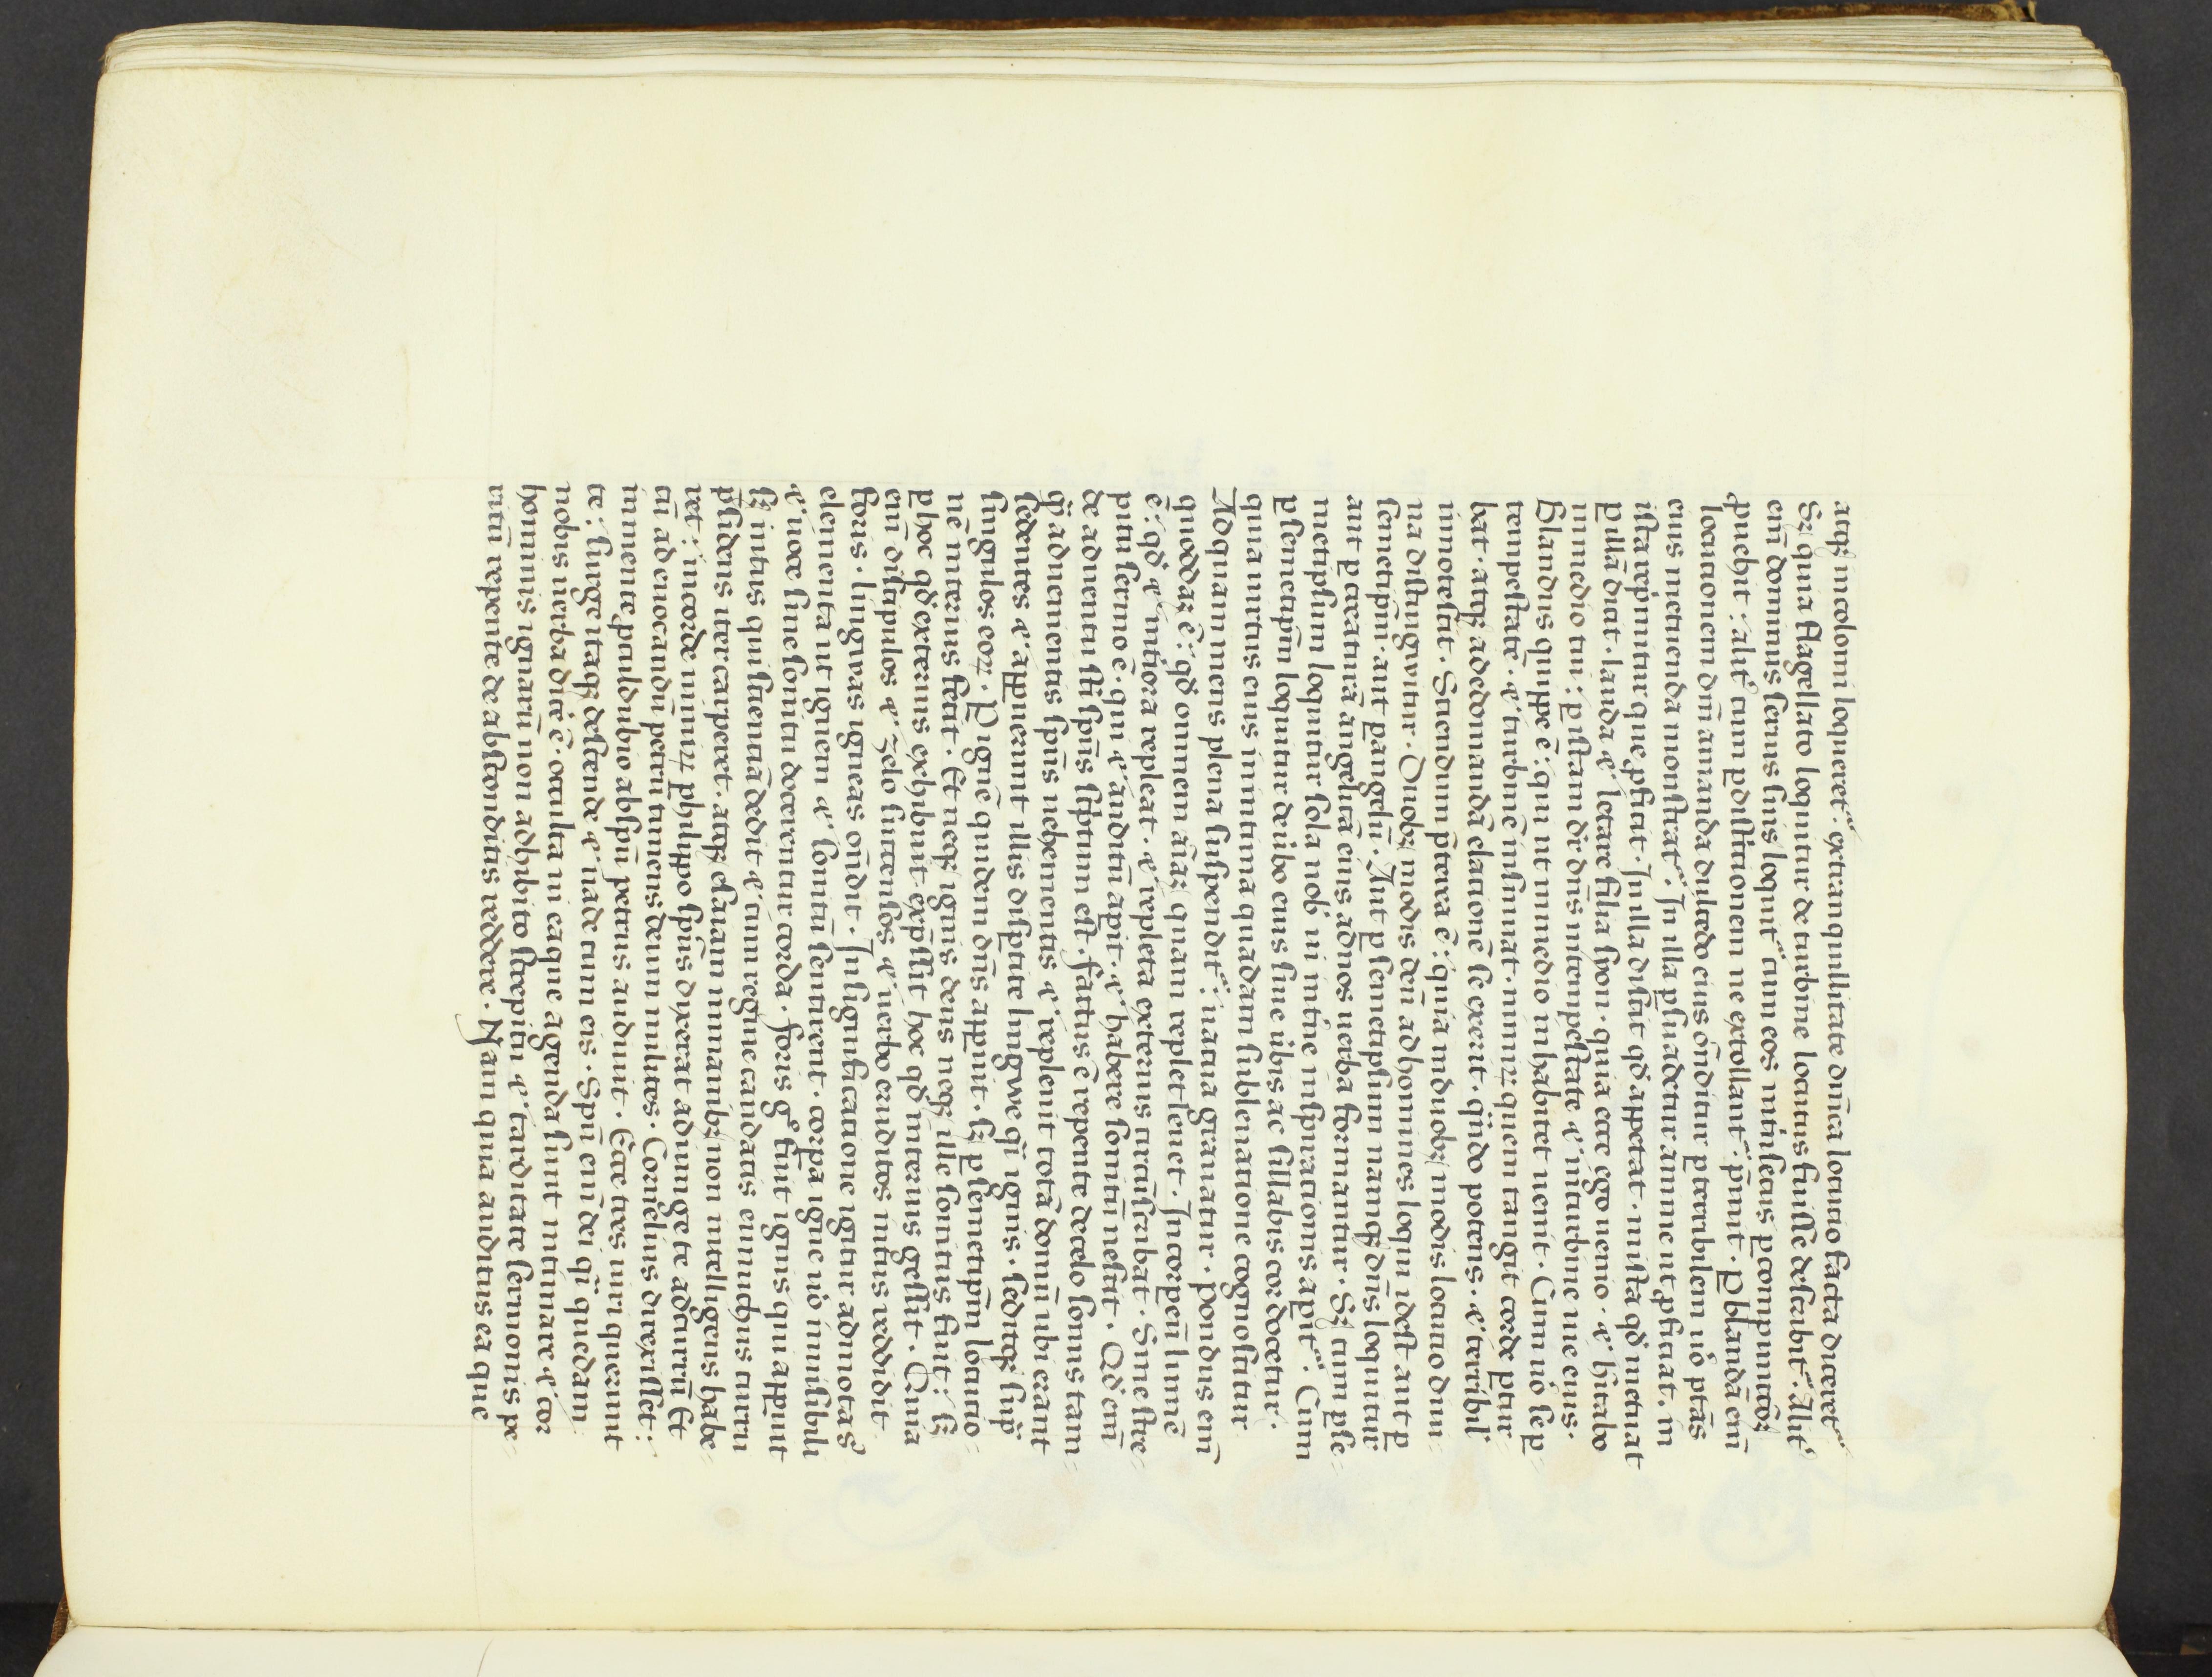 atq; incolomi loqueret᷒ extranquillitate dn̄ica locutio facta diceret᷒
Sz quia flagellato loquitur de turbine locutus fuisse describit᷒. Alit᷒
eni̅ dominus seruis suis loquit᷒ cum eos intrīsecus ꝑcompunctōez
ꝓuehit: alit᷒ cum ꝑdistrictionem ne extollant᷒ p̄mit. Ꝑblandā eni̅
locutionem dn̄i amanda dulcedo eius on̄ditur ꝑterribilem uo ptās
eius metuenda monstrat᷒. In illa ꝑsuadetur anime ut ꝓficiat. in
ista repͥmitur que ꝓficit. Inilla discit qd̓ appetat. inista qd̓ metuat
ꝑillā dicit. lauda &̓ letare filia syon. quia ecce ego uenio. &̓ hītabo
inmedio tui: ꝑistam dr̄ dn̄s intempestate &̓ inturbine uie eius.
Blandus quippe ē: qui ut inmedio inhabitet uenit. Cum uo seꝑ
tempestatē. &̓ turbinē insinuat. nimirz quem tangit corde ꝑtur=
bat. atq; adedomandā elationē se exerit. qn̄do potens. &̓ terribil'
innotescit. Sciendum p̄terea ē: quia induobz modis locutio diui
na distinguitur. Duobz modis deū ad homines loqui idest aut ꝑ
semetip̄m. aut ꝑangelū. Aut ꝑsemetipsum nanq; dn̄s loquitur
aut ꝑcreaturā angelicā eius adnos uerba formantur. Sz cum ꝑse=
metipsum loquitur sola nob̓ ui interne inspirationis aꝑit᷒. Cum
ꝑsemetip̄m loquitur de ūbo eius sine ūbis ac sillabis cor docetur.
quia uirtus eius inintima quadam subleuatione cognoscitur
Adquam mens plena suspendit᷒: uacua grauatur. Pondus eni̅
quoddaz ē: qd̓ omnem aīaz quam replet leuet. Incorpeū lumē
ē: qd̓ &̓ intīora repleat. &̓ repleta exterius circūscribat. Sinestre=
pitu sermo ē. qui &̓ auditū aꝑit. &̓ habere sonitū nescit. Qd̓ eni̅
de aduentu sc̄i sp̄us scͥptum est. Factus ē repente decelo sonus tam=
q̄ aduenientis sp̄us uehementis &̓ repleuit totā domū ubi erant
sedentes &̓ apparuerunt illis disꝑtite lingwe q̄i ignis. seditq; sup̄
singulos eoz. Ꝑignē quidem dn̄s appuit. sz ꝑsemetip̄m locutio=
nē interius fecit. Et neq; ignis deus neq; ille sonitus fuit: sz
ꝑhoc qd̓ exterius exhibuit exp̄ssit hoc qd̓ interius gessit. Quia
eni̅ discipulos &̓ zelo succensos &̓ uerbo eruditos intus reddidit
foris. lingwas igneas on̄dit. Insignificatione igitur admotas̓
elementa ut ignem &̓ sonitū sentirent. corpa igne uo inuisibili
&̓ uoce sinesonitu docerentur corda. foris gͦ fuit ignis qui appuit
sz intus qui scientiā dedit &̓ cum regine candacis eunuchus curru
p̄sidens iter carperet. atq; esaiam inmanibz non intelligens habe=
ret: incorde nimirz phylippo sp̄us dixerat adiunge te adcurrū Et
cū adeuocandū petrū timens deum milites. Cornelius direxisset:
inmente pculdubio absp̄u petrus audiuit. Ecce tres uiri querunt
te: surge itaq; descende &̓ uade cum eis. Sp̄u eni̅ dei q̄i quedam
nobis uerba dicē̄ ē. occulta ui eaque agenda sunt intimare &̓ cor
hominis ignarū non adhibito strepitu &̓ tarditate sermonis pe=
ritū repente de absconditus reddere. Nam quia auditus ea que